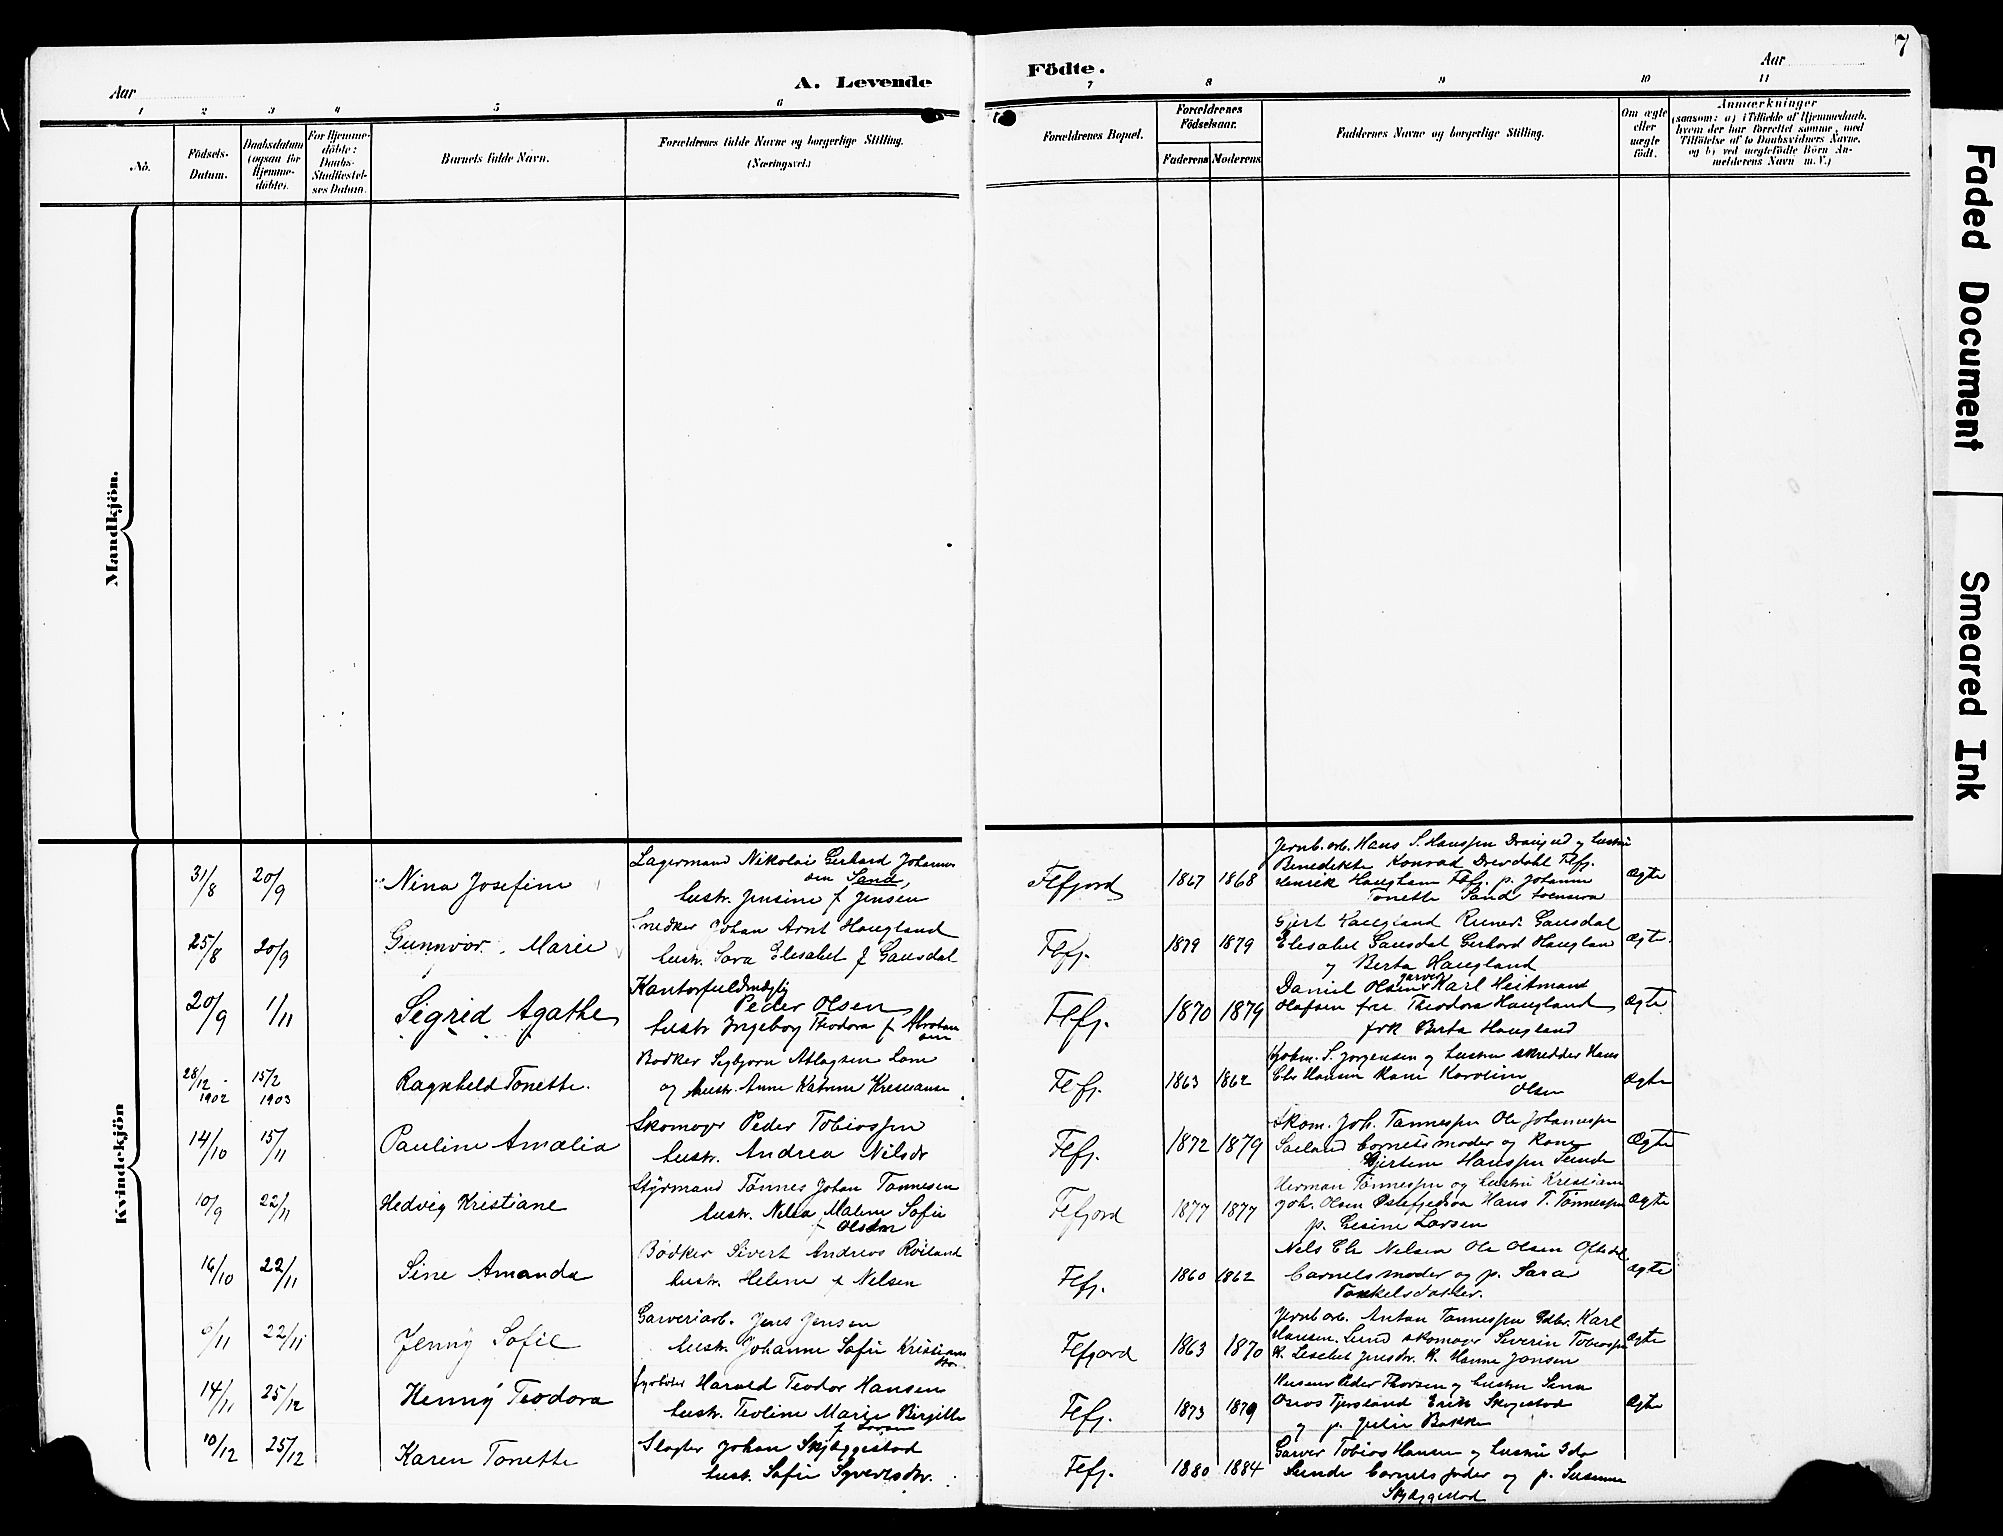 7
Aar
A. Levende
Födte.
Aar
1 2 3 4 5 6 7 8 9 10 11
No.
Födsels-
Datum.
Daabsdatum
(ogsaa for
Hjemme-
döbte).
For Hjemme-
döbte:
Daabs-
Stadfæstel-
ses Datum.
Barnets fulde Navn.
Forældrenes fulde Navne og borgerlige Stilling.
(Næringsvei.)
Forældrenes Bopæl.
Forældrenes
Födselsaar.
Faderens Moderens
Faddernes Navne og borgerlige Stilling.
Om ægte
eller
uægte
födt.
Anmærkninger
(saasom: a) i Tilfælde af Hjemmedaab,
hvem der har forrettet samme, med
Tilföielse af to Daabsvidners Navne,
og b) ved uægtefödte Börn An-
melderens Navn m. V.)
Mandkjön.
Kvindekjön
31/8 20/9 Nina Josefine
Lagermand Nikolai Gerhard Johannes
sen Sand,
hustr. Jensine f Jensen
Flefjord 1867 1868
Jernb. arb. Hans S. Hanssen og hustru
Benedikte Konrad Drevdahl Flefj.
Henrik Haugham Flefj. p. Johanne
Tonette Sand
ægte
25/8 20/9 Gunnvor Marie
Snedker Johan Arnt Haugland
hustr. Sara Elisabet f Gausdal
Flefj. 1879 1879
Gjert Haugland Gausdal
Elisabet Gausdal Gerhard Hauglan
og Berta Haugland
ægte.
20/9 1/11 Sigrid Agathe
Kantorfuldmægtig
Peder Olsen
hustr Ingeborg Theodora f Abraham
sen
Flefj. 1870 1879
Daniel Olsen garver Karl Heitmann
Olafsen fru Theodora Haugland
frk Berta Haugland
ægte
28/12 1902 15/2 1903 Ragnhild Tonette.
Bødker Sigbjørn Atlagsen Lom
og hustr. Anne Katrine
Flefj. 1863 1862
Kjøbm. S. Jørgensen og hustru skredder Hans
Hansen kone Karoline
Olsen
ægte
14/10 15/11 Pauline Amalia
Skomager Peder Tobiassen
hustr. Andrea Nilsdr
Flefj. 1872 1879
Skom. Joh. Tønnessen Ole Johannessen
Barnets moder og kone
Hanssen Sunde
ægte
10/9 22/11 Hedvig Kristiane
Styrmand Tønnes Johan Tønnesen
hustr. Nilla Malene Sofie
f Olsen
Flefjord 1877 1877
Herman Tønnessen og hustru Kristiane
Joh. Olsen Hans T. Tønnessen
p. Gesine Larsen
ægte
16/10 22/11 Sine Amanda
Bødker Sivert Andreas Røiland
hustr. Helene f Nelsen
Flefj. 1860 1862
Nels Nelsen Ole Olsen
Barnets moder og p. Sara
ægte
/11 22/11 Jenny Sofie
Garveriarb. Jens Jensen
hustr. Johanne Sofie Kristians
dtr.
Flefjord 1863 1870
Jernb arb. Anton Tønnessen Karl
Hansen. Lund skomager Severin Tobiassen
K. Lisebet Jensdtr. K. Hanne Jansen
ægte
14/11 25/12 Henny Teodora
Harald Teodor Hansen
hustr. Teoline Marie Birgitte
f Larsen
Flefj. 1873 1879
Peder Thorsen og hustru Sina
Fjersland Erik Skogestad
og p. Julie Bakke
ægte
10/12 25/12 Karen Tonette
Slagter Johan Skjæggestad
hust. Sofie Syvertsdtr.
Flefj. 1880 1884
Garver Tobias Hansen og hustru Ida
Sunde barnets fader og p. Susanne
Skjæggestad
Faded Document
Smeared Ink